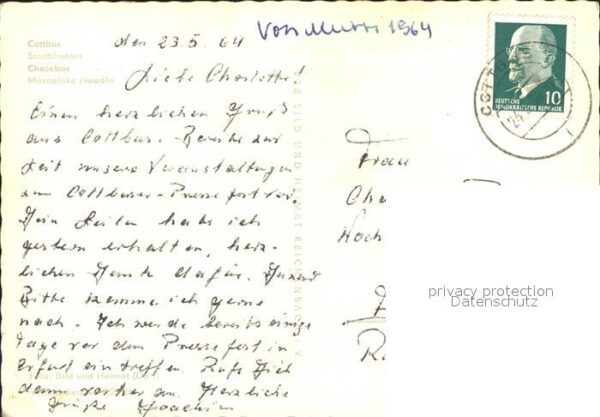 Cottbus
Stadttheater
Chośebuz
Měšćańske źiwadło
den 23.5.64
Von Mutti 1964
Liebe Charlotte!
Einen herzlichen Gruß
aus Cottbus. Bereite zur
Zeit unsere Veranstaltungen
zum Cottbuser Pressefest vor.
Dein Zeilen habe ich
gestern erhalten, herz-
lichen Dank dafür. Deiner
Bitte komme ich gerne
nach. Ich werde bereits einige
Tage vor dem Pressefest in
Erfurt eintreffen. Rufe Dich
dann vorher an. Herzliche
Grüße Joachim
BILD UND HEIMAT REICHENBACH I. V.
Foto: Bild und Heimat
COTTBUS
10
DEUTSCHE
DEMOKRATISCHE REPUBLIK
Frau
Cha
Hoch
privacy protection
Datenschutz